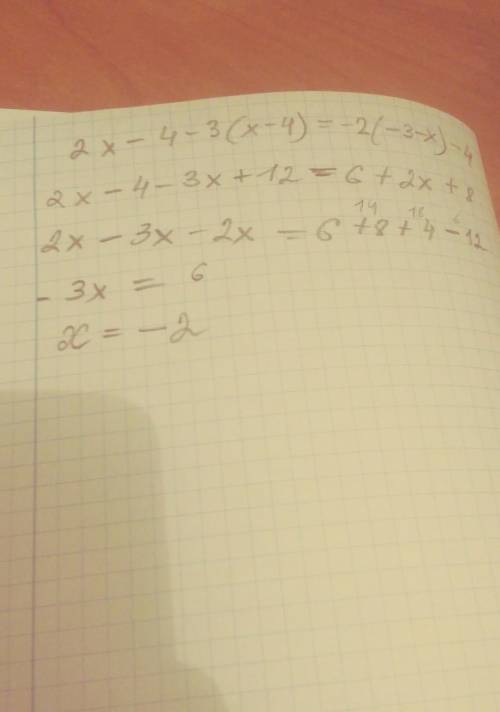 2x - 4 - 3(x-4) = -2(-3-x) - 4
2x - 4 - 3x + 12 = 6 + 2x + 8
14 18 6
2x - 3x - 2x = 6 + 8 + 4 - 12
- 3x = 6
x = - 2